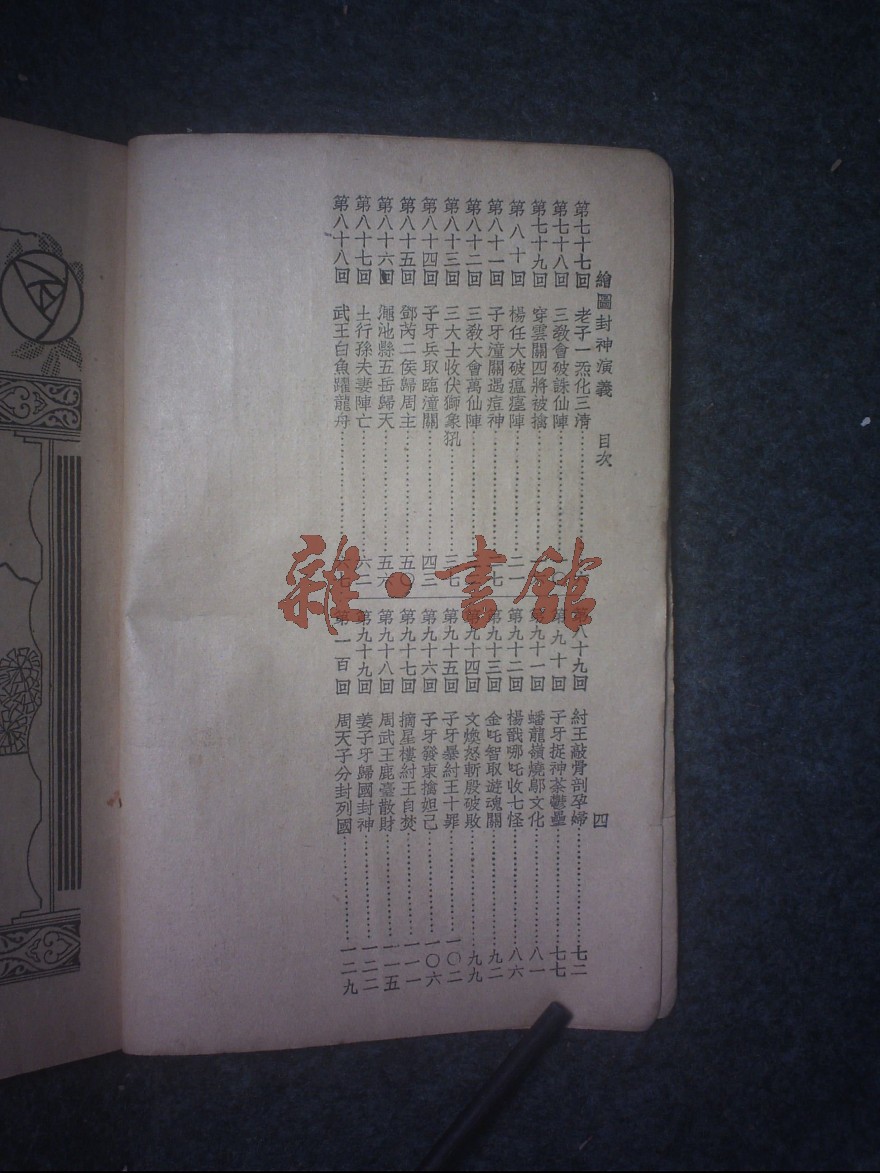 繪圖封神演義 目次 四
第七十七回 老子一炁化三清
第七十八回 三教會破誅仙陣
第七十九回 穿雲關四將被擒
第八十回 楊任大破瘟㾮陣 二一
第八十一回 子牙潼關遇痘神 七
第八十二回 三教大會萬仙陣
第八十三回 三大士收伏獅象犼 三七
第八十四回 子牙兵取臨潼關 四三
第八十五回 鄧芮二侯歸周主 五〇
第八十六回 澠池縣五岳歸天 五六
第八十七回 土行孫夫妻陣亡 六二
第八十八回 武王白魚躍龍舟 六七
第八十九回 紂王敲骨剖孕婦 七二
第九十回 子牙捉神荼鬱壘 七七
第九十一回 蟠龍嶺燒鄔文化 八一
第九十二回 楊戩哪吒收七怪 八六
第九十三回 金吒智取遊魂關 九二
第九十四回 文煥怒斬殷破敗 九九
第九十五回 子牙暴紂王十罪 一〇二
第九十六回 子牙發柬擒妲己 一〇六
第九十七回 摘星樓紂王自焚 一一一
第九十八回 周武王鹿臺散財 一一五
第九十九回 姜子牙歸國封神 一二二
第一百回 周天子分封列國 一二九
雜·書館